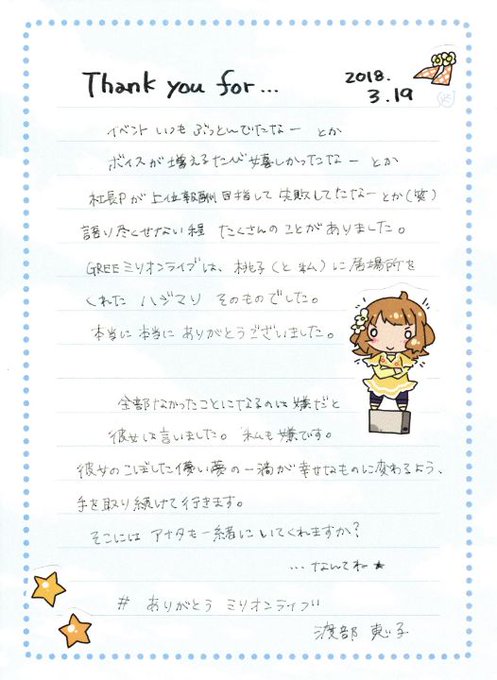 Thank you for...
2018.
3.19
イベント いつも ぶっとんでたなー とか
ボイスが増えるたび嬉しかったなー とか
社長Pが上位報酬目指して失敗してたなーとか(笑)
語り尽くせない程 たくさんのことがありました。
GREEミリオンライブは、桃子(と私)に居場所を
くれた ハジマリ そのものでした。
本当に本当にありがとうございました。
全部なかったことになるのは嫌だと
彼女は言いました。私も嫌です。
彼女のこぼした儚い夢の一滴が幸せなものに変わるよう、
手を取り続けて行きます。
そこには アナタも一緒にいてくれますか?
...なんてね★
# ありがとう ミリオンライブ
渡部 恵子